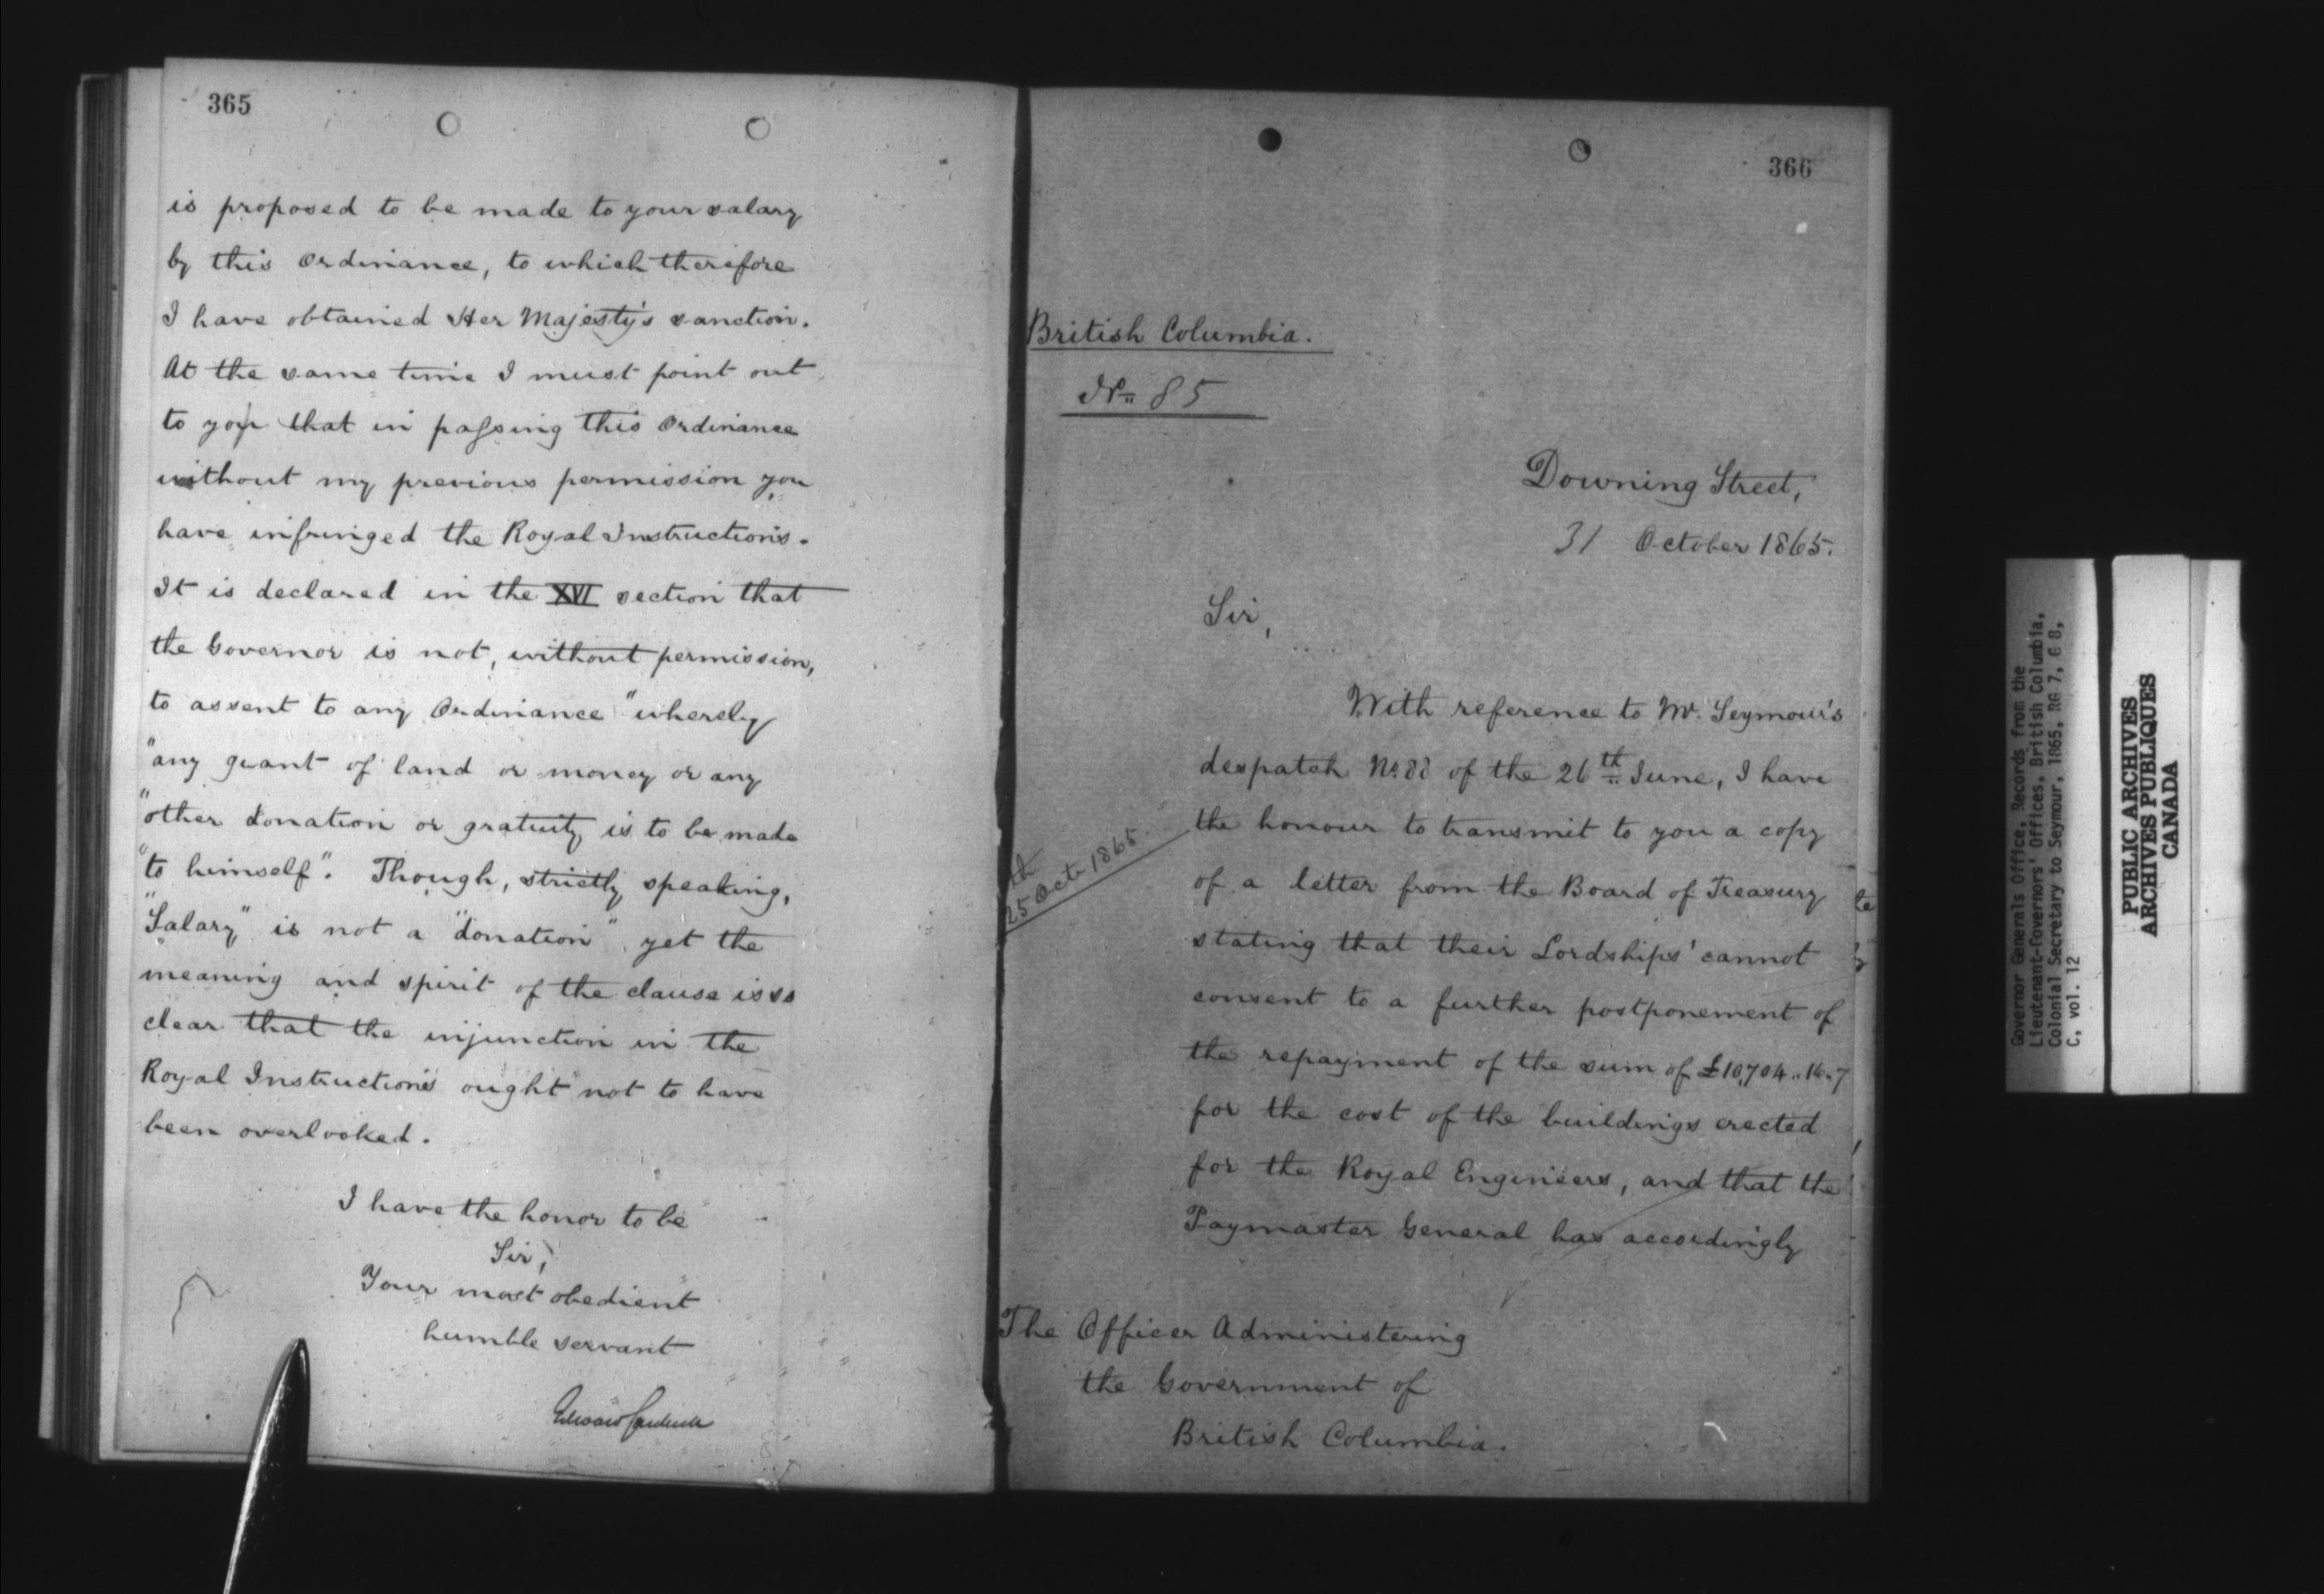 365
is proposed to be made to your salary
by this Ordinance, to which therefore
I have obtained Her Majesty's sanction.
At the same time I must point out
to you that in passing this Ordinance
without my previous permission you
have infringed the Royal Instructions.
It is declared in the XVI section that
the Governor is not, without permission,
to assent to any Ordinance "whereby
"any grant of land or money or any
"other donation or gratuity is to be made
"to himself". Though, strictly speaking,
"Salary" is not a "donation" yet the
meaning and spirit of the clause is so
clear that the injunction in the
Royal Instructions ought not to have
been overlooked.
I have the honor to be
Sir,
Your most obedient
humble servant
Edward Cardwell
366
British Columbia.
No. 85
Downing Street,
31 October 1865.
Sir,
With reference to Mr. Seymour's
despatch No. 88 of the 26th June, I have
the honour to transmit to you a copy
25 Oct. 1865.
of a letter from the Board of Treasury
stating that their Lordships' cannot
consent to a further postponement of
the repayment of the sum of £10,704..16.7
for the cost of the buildings erected
for the Royal Engineers, and that the
Paymaster General has accordingly
The Officer Administering
the Government of
British Columbia.
Governor Generals Office, Records from the
Lieutenant-Governors' Offices, British Columbia,
Colonial Secretary to Seymour, 1865, RG 7, G 8,
C, vol. 12
PUBLIC ARCHIVES
ARCHIVES PUBLIQUES
CANADA